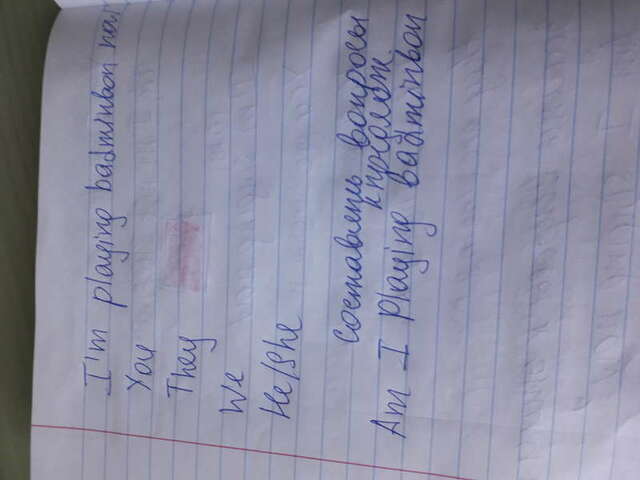 I'm playing badminbon now
You
They
We
He/She
составить вопросы
к
Am I Playing badminbon